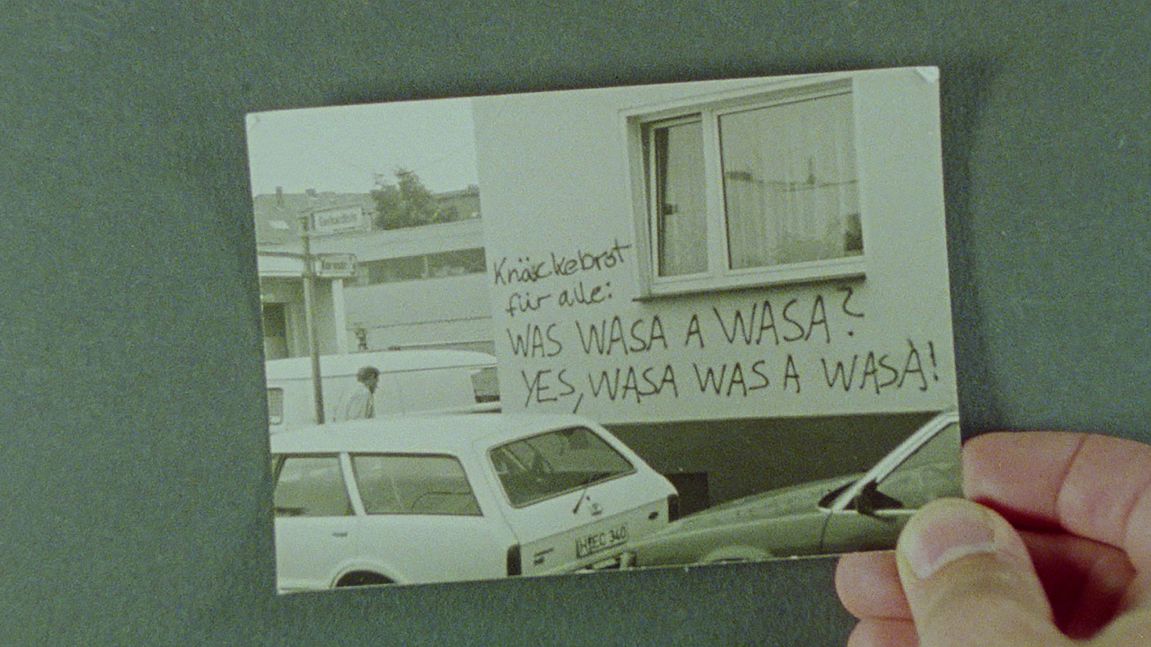 Knäckebrot
für alle:
WAS WASA A WASA?
YES, WASA WAS A WASA!
H EC 340